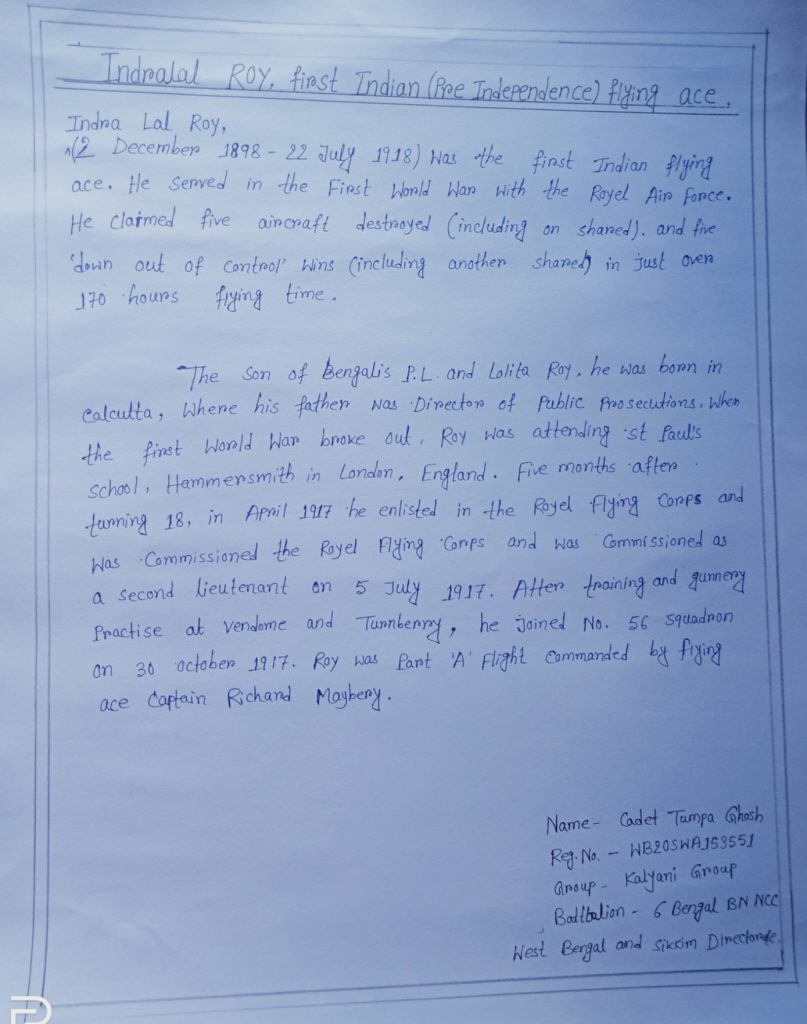 Indralal Roy, first Indian (Pre Independence) flying ace.
Indra Lal Roy,
(2 December 1898 - 22 July 1918) was the first Indian flying
ace. He served in the First World War with the Royel Air Force.
He claimed five aircraft destroyed (including on shared). and five
'down out of control' wins (including another shared) in just over
170 hours flying time.
The son of Bengalis P.L. and Lolita Roy, he was born in
Calcutta, where his father was Director of Public Prosecutions. When
the first World War broke out, Roy was attending st Paul's
school, Hammersmith in London, England. Five months after
turning 18, in April 1917 he enlisted in the Royel Flying Corps and
was Commissioned the Royel Flying Corps and was Commissioned as
a second lieutenant on 5 July 1917. After training and gunnery
Practise at vendome and Turnberry, he joined No. 56 squadron
on 30 october 1917. Roy was Part 'A' Flight Commanded by flying
ace Captain Richard Maybery.
Name - Cadet Tumpa Ghosh
Reg. No. - WB20SWA153551
Group - Kalyani Group
Battbalion - 6 Bengal BN NCC
West Bengal and Sikkim Directorate.